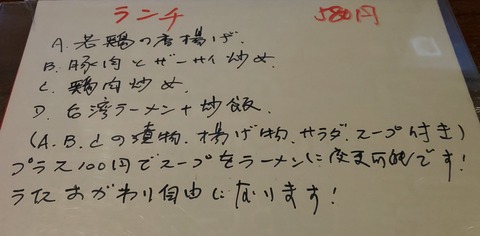 ランチ 580円
A. 若鶏の香揚げ.
B. 豚肉とザーサイ炒め
C. 鶏肉炒め
D. 台湾ラーメン+炒飯.
(A.B.Cの漬物.揚げ物.サラダ.スープ付き)
プラス100円でスープをラーメンに変更可能です!
おかわり自由になります!